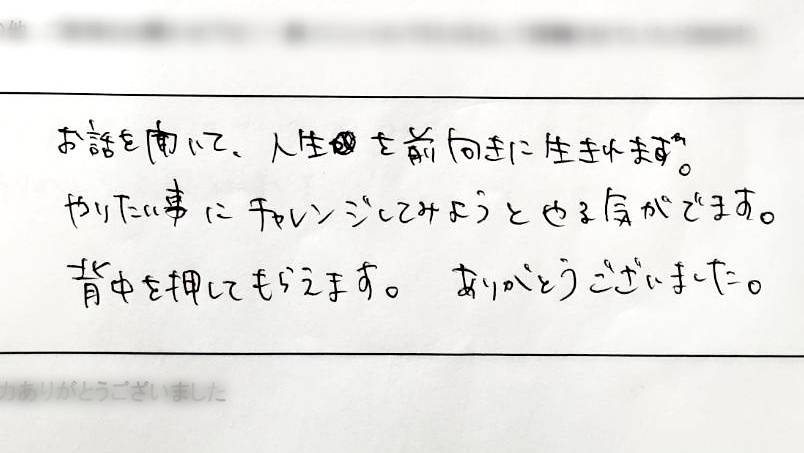 お話を聞いて、人生を前向きに生きれます。
やりたい事にチャレンジしてみようとやる気がでます。
背中を押してもらえます。 ありがとうございました。
力ありがとうございました